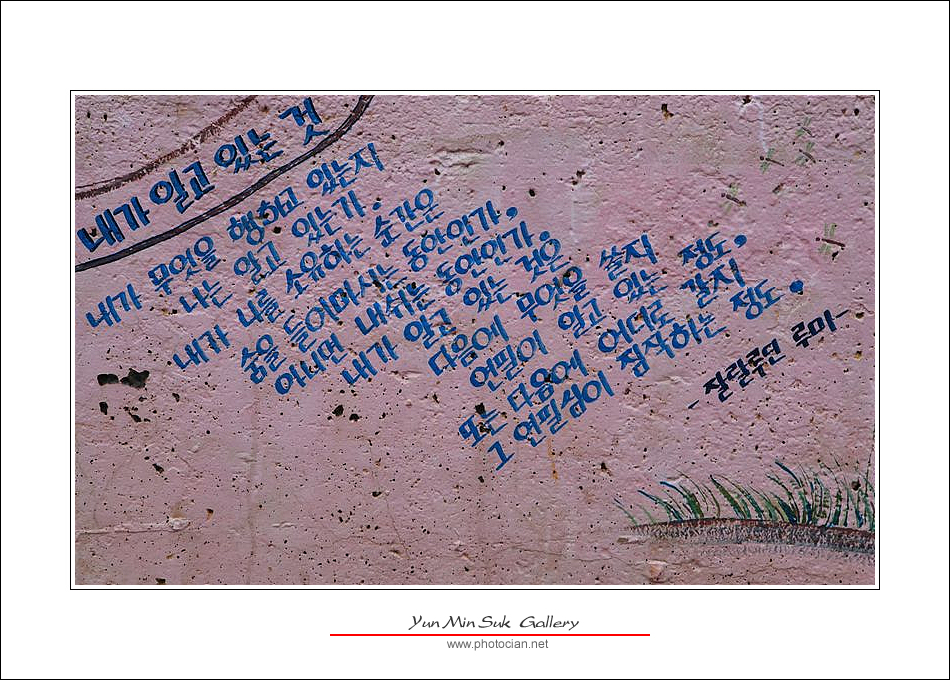 내가 알고 있는 것
내가 무엇을 행하고 있는지
나는 알고 있는가.
내가 나를 소유하는 순간은
숨을 들이마시는 동안인가,
아니면 내쉬는 동안인가.
내가 알고 있는 것은
다음에 무엇을 쓸지
연필이 알고 있는 정도,
또는 다음에 어디로 갈지
그 연필심이 짐작하는 정도.
- 잘랄루딘 루미 -
Yun Min Suk Gallery
www.photocian.net